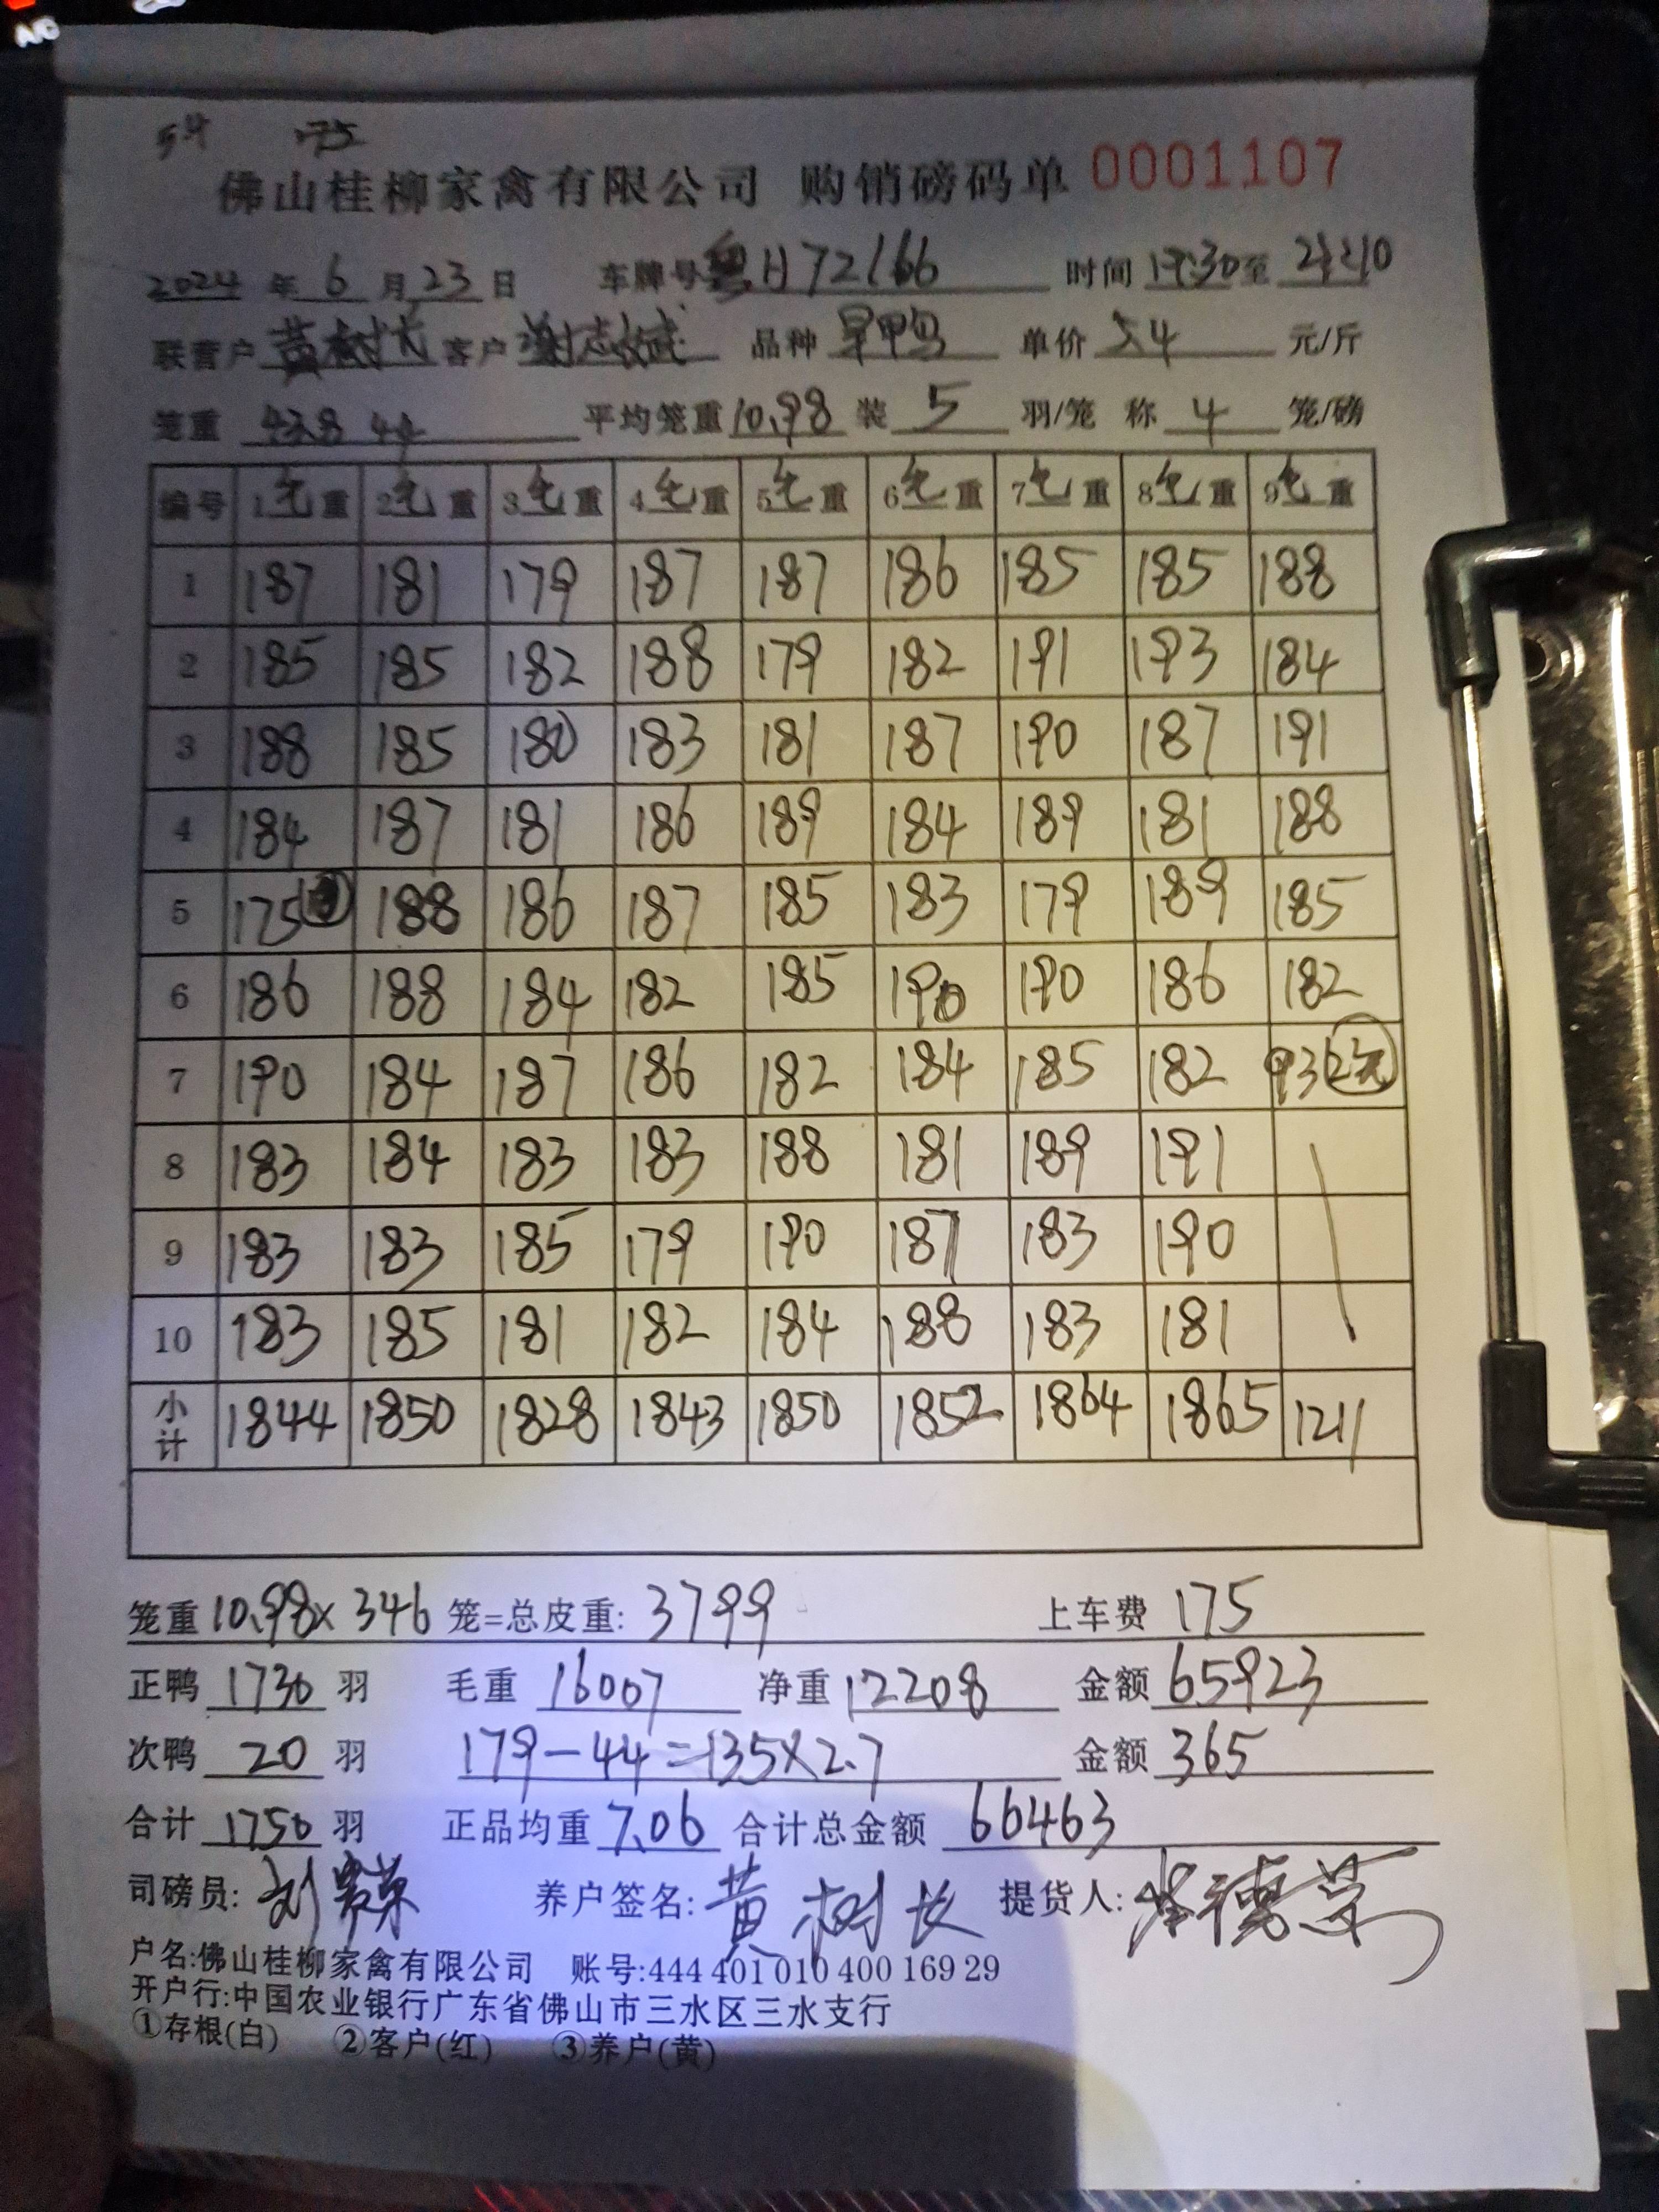 54 175
佛山桂柳家禽有限公司 购销磅码单 0001107
2024 年 6 月 23 日 车牌号 粤H72166 时间 19:30 至 21:10
联营户 黄树长 客户 谢志斌 品种 旱鸭 单价 5.4 元/斤
笼重 43.8 44 平均笼重 10.98 装 5 羽/笼 称 4 笼/磅
编号 1毛重 2毛重 3毛重 4毛重 5毛重 6毛重 7毛重 8毛重 9毛重
1 187 181 179 187 187 186 185 185 188
2 185 185 182 188 179 182 191 193 184
3 188 185 180 183 181 187 190 187 191
4 184 187 181 186 189 184 189 181 188
5 175 188 186 187 185 183 179 189 185
6 186 188 184 182 185 190 190 186 182
7 190 184 187 186 182 184 185 182 93 2笼
8 183 184 183 183 188 181 189 191
9 183 183 185 179 190 187 183 190
10 183 185 181 182 184 188 183 181
小计 1844 1850 1828 1843 1850 1852 1864 1865 1211
笼重 10.98 x 346 笼=总皮重: 3799 上车费 175
正鸭 1730 羽 毛重 16007 净重 12208 金额 65923
次鸭 20 羽 179-44=135×2.7 金额 365
合计 1750 羽 正品均重 7.06 合计总金额 66463
司磅员: 养户签名: 黄树长 提货人:
户名:佛山桂柳家禽有限公司 账号:444 401 010 400 169 29
开户行:中国农业银行广东省佛山市三水区三水支行
①存根(白) ②客户(红) ③养户(黄)